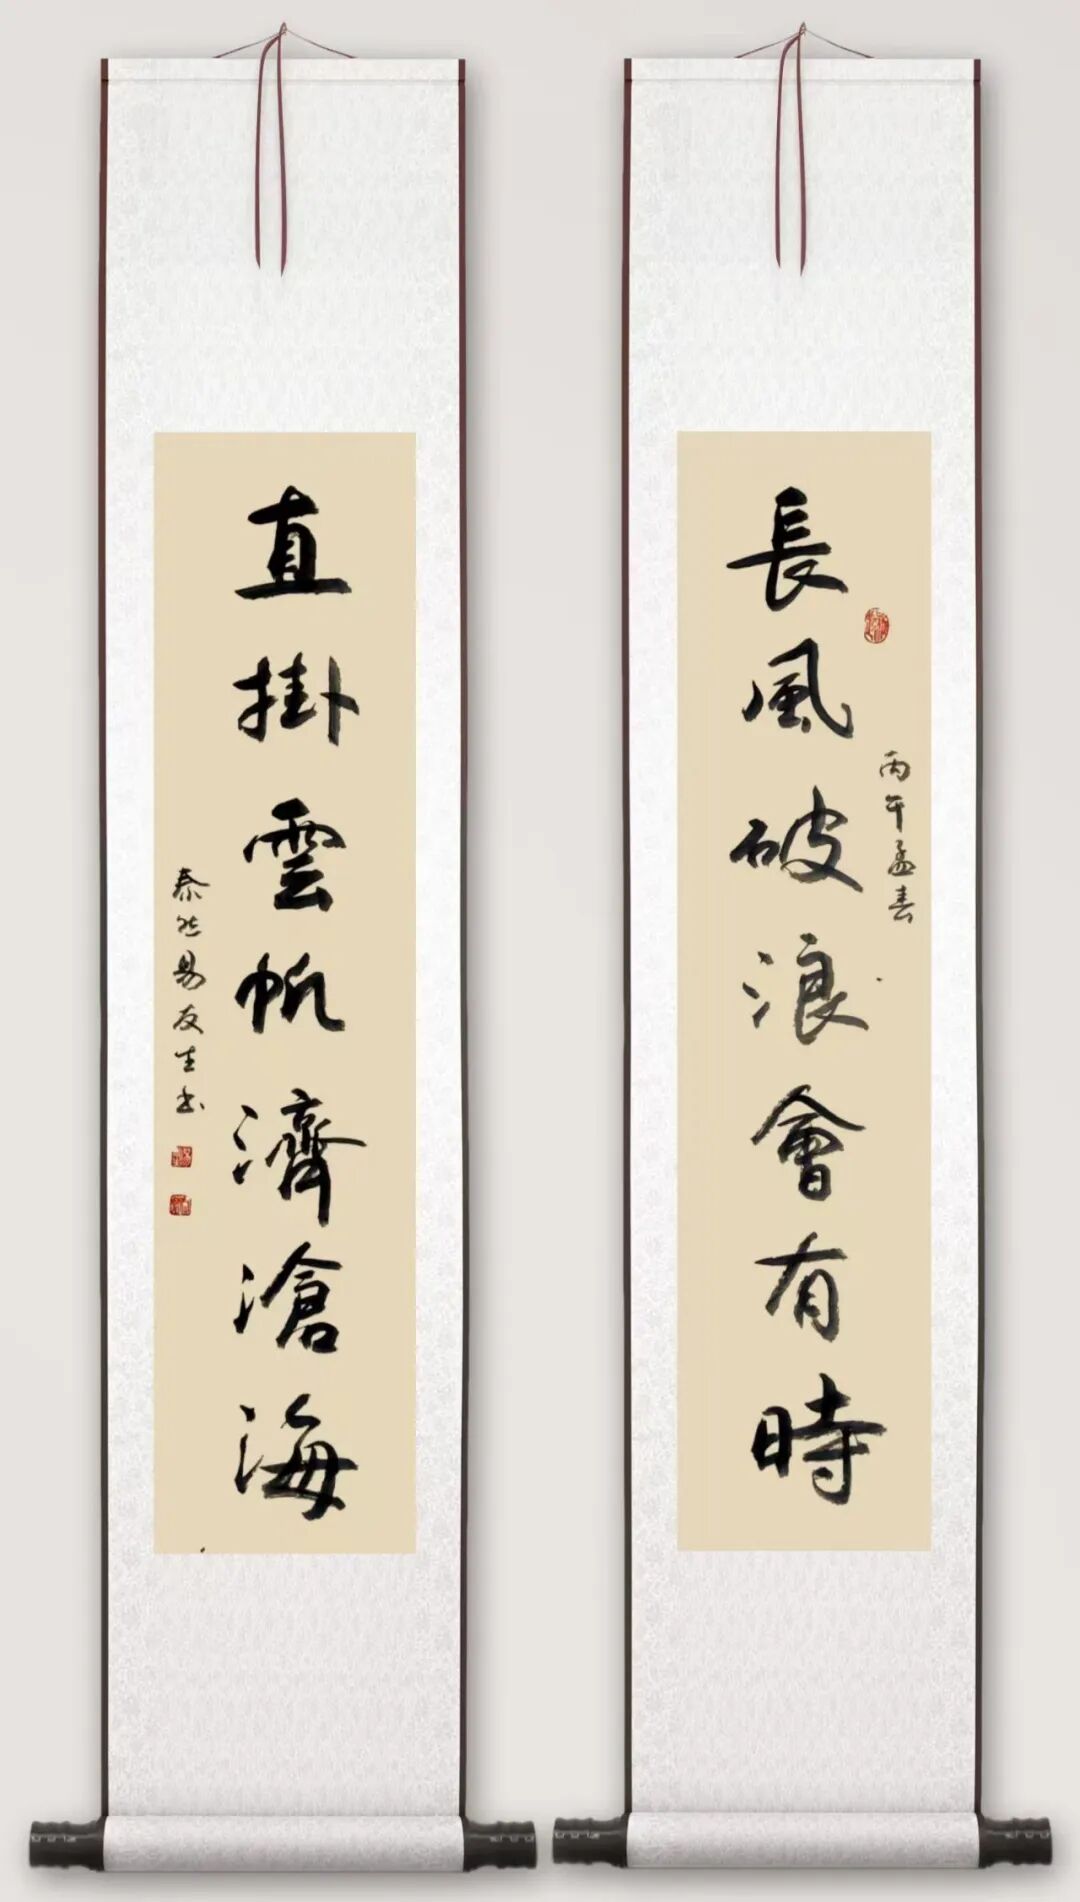 長風破浪會有時
丙午孟春
直掛雲帆濟滄海
泰然易友生书